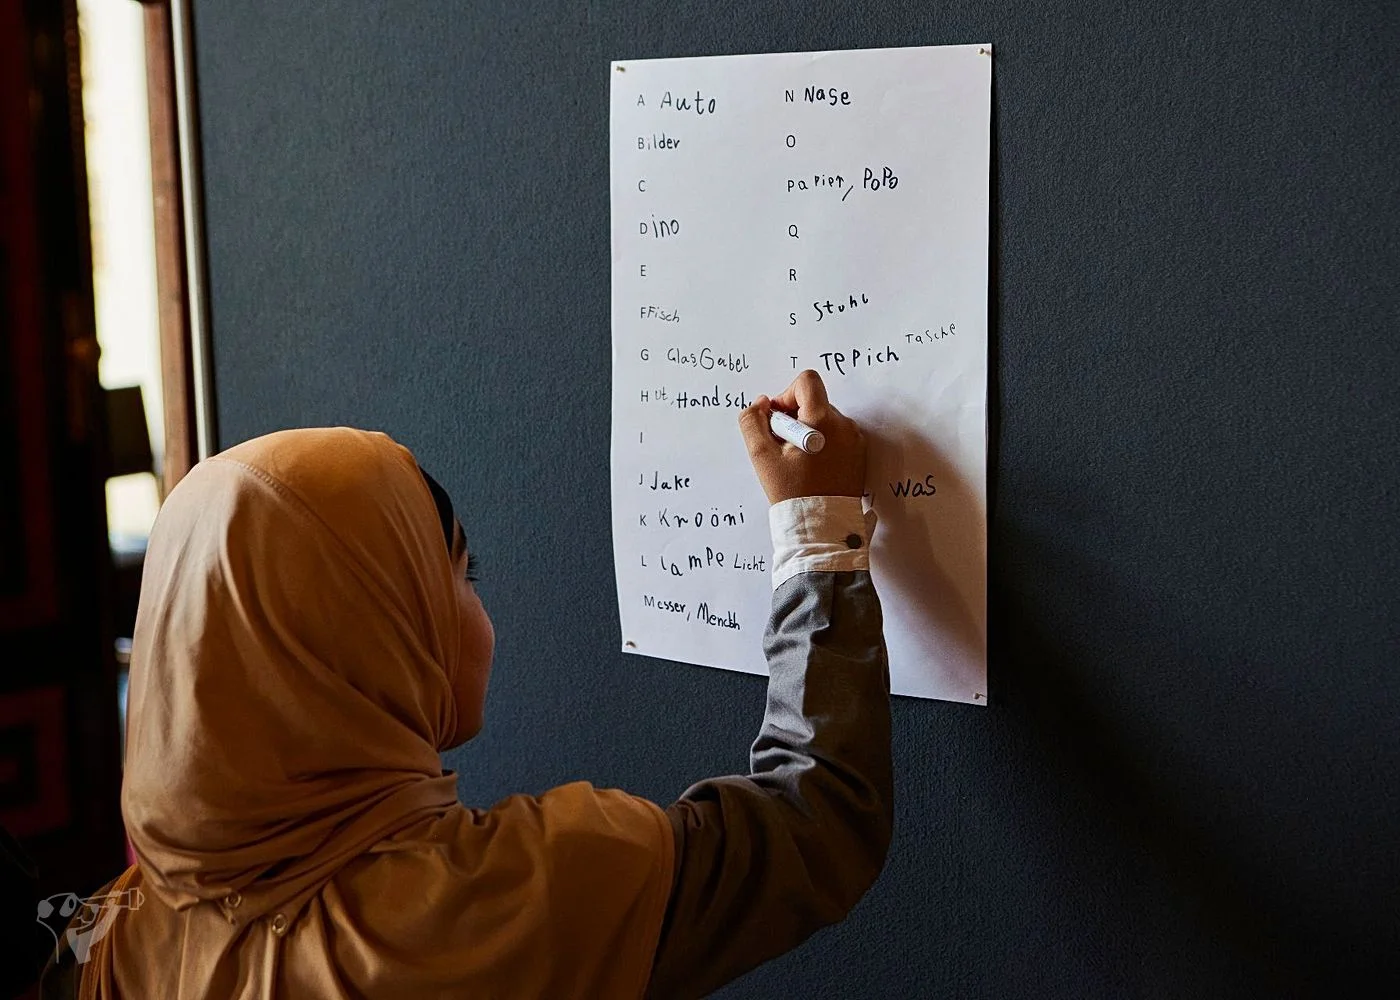 A Auto
Bilder
C
Dino
E
FFisch
G Glas Gabel
Hut, Handsch
I
J Jake
K Kroöni
L Lampe Licht
Messer, Mencbh
N Nase
O
Papier, PoPo
Q
R
S Stuhl
T TePich Tasche
, was